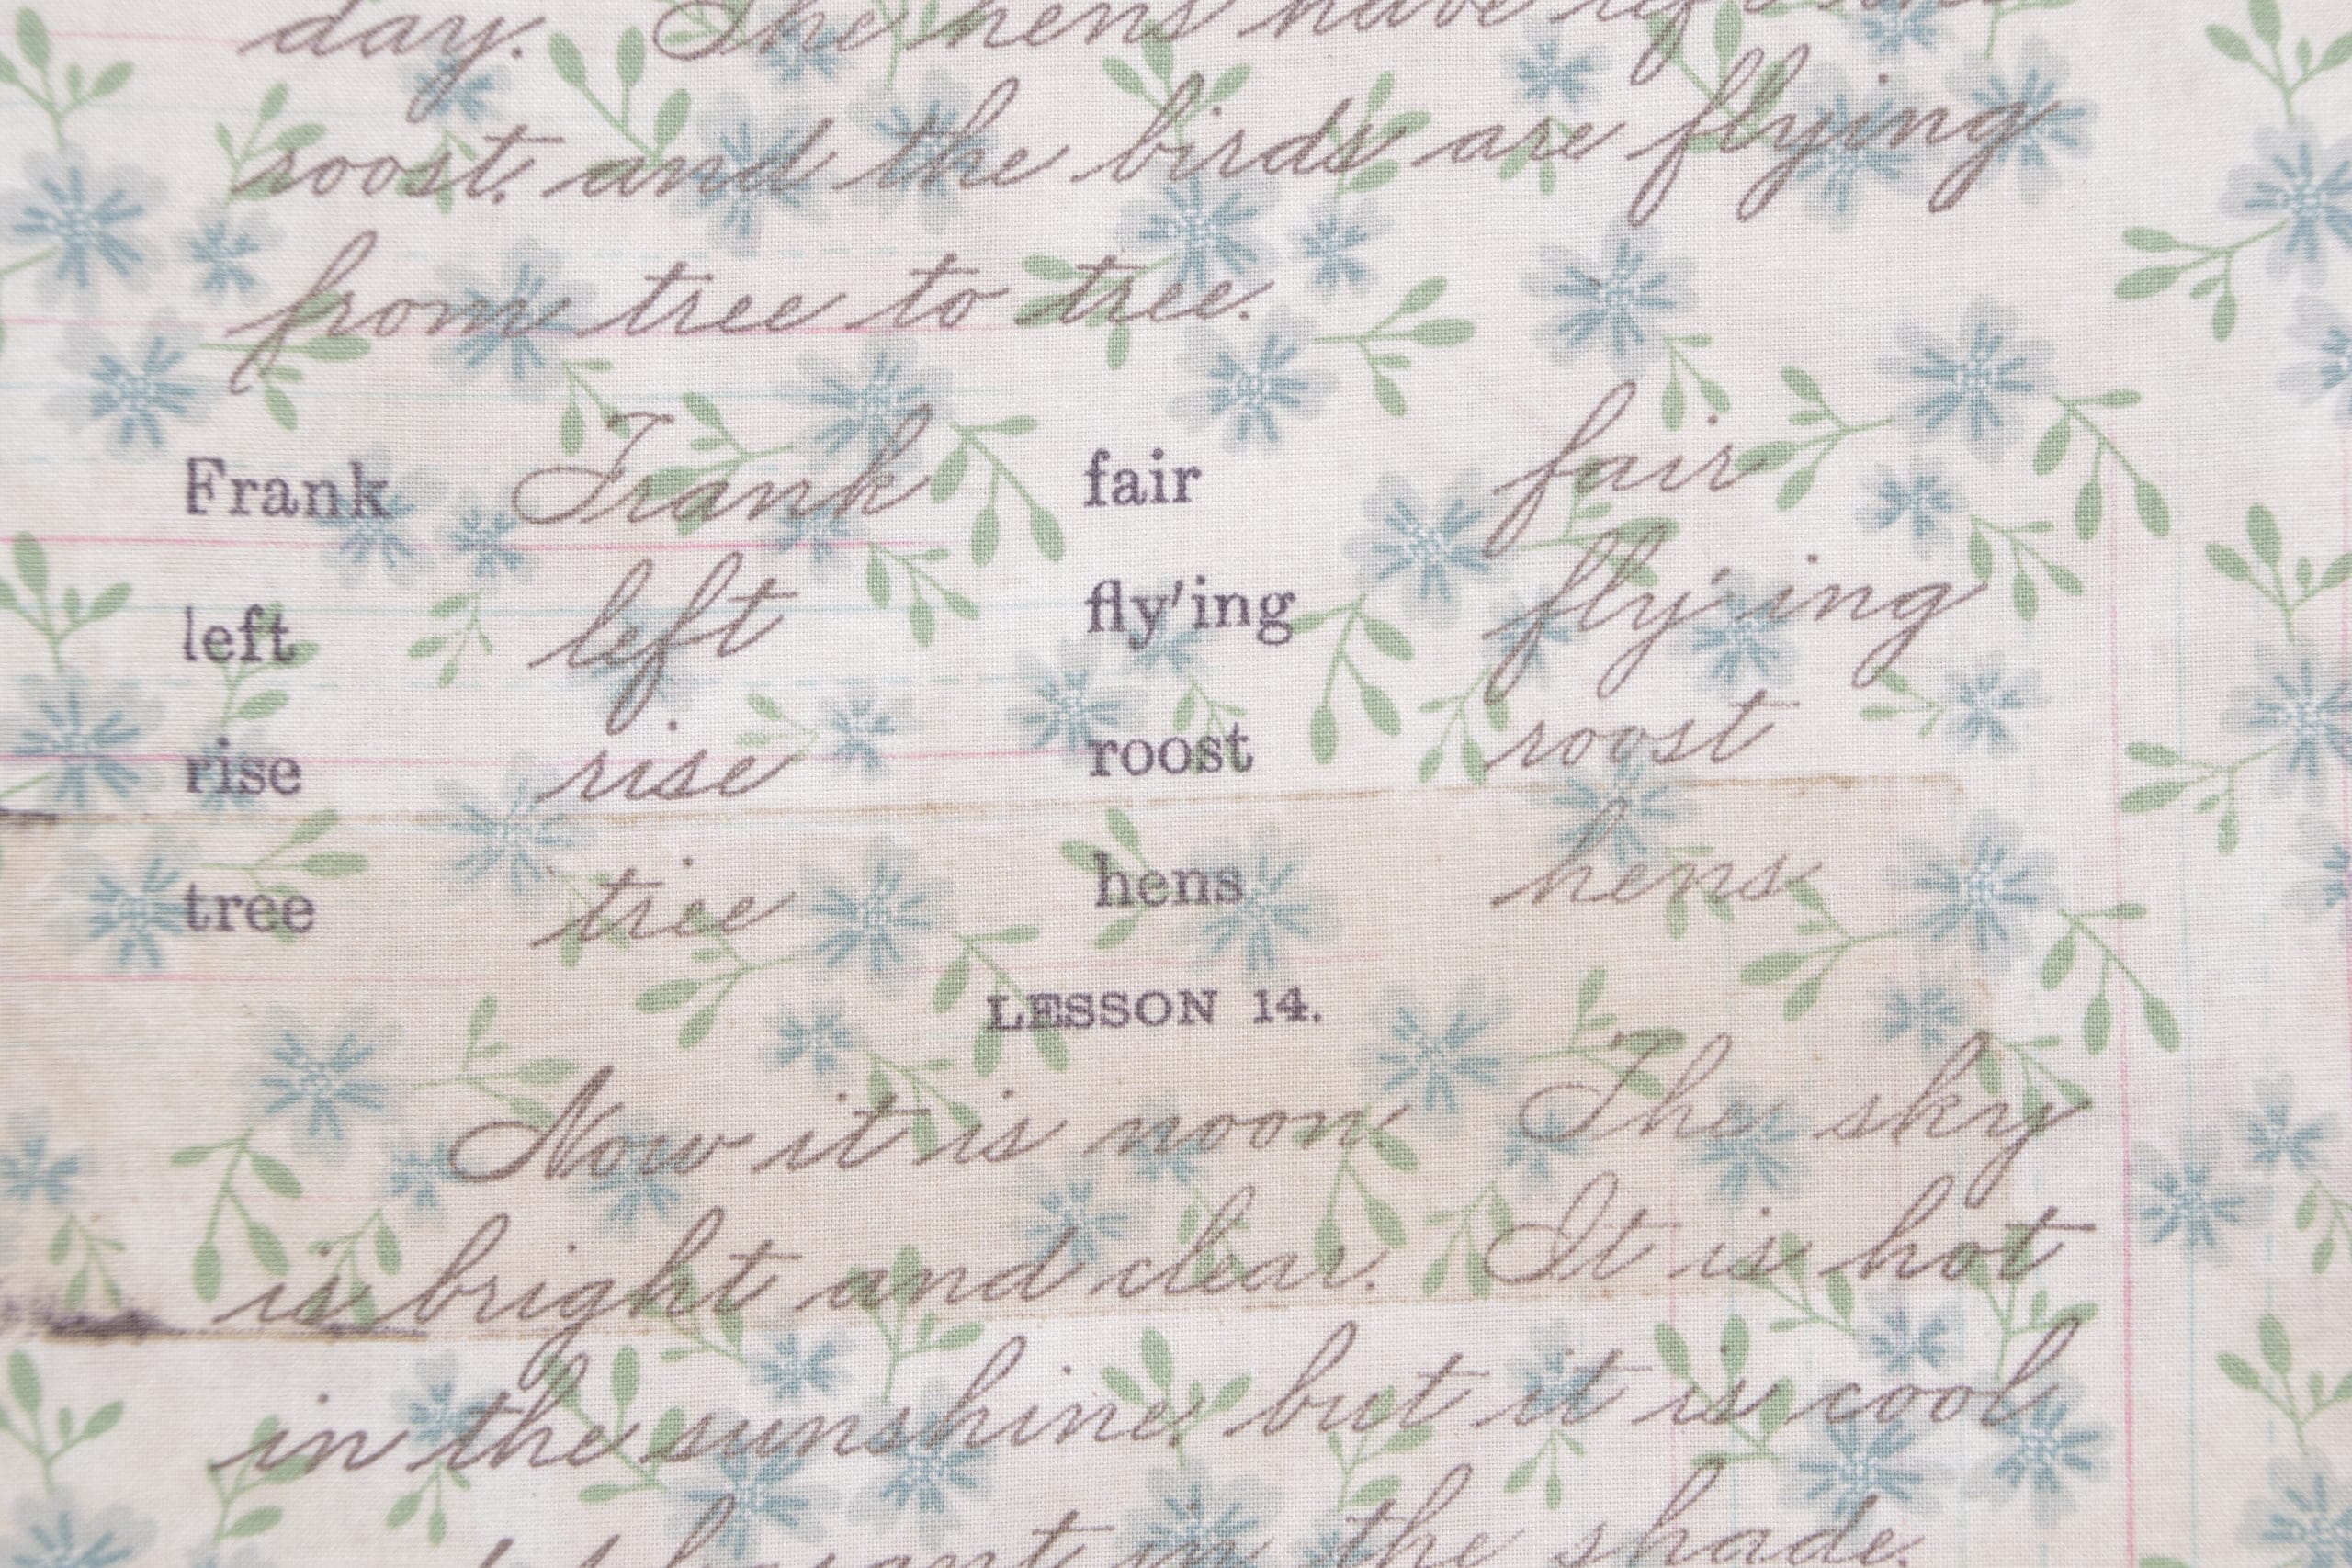 day. The hens have left the
roost, and the birds are flying
from tree to tree.
Frank Frank fair fair
left left fly'ing fly'ing
rise rise roost roost
tree tree hens hens
LESSON 14.
Now it is noon. The sky
is bright and clear. It is hot
in the sunshine, but it is cool
in the shade.